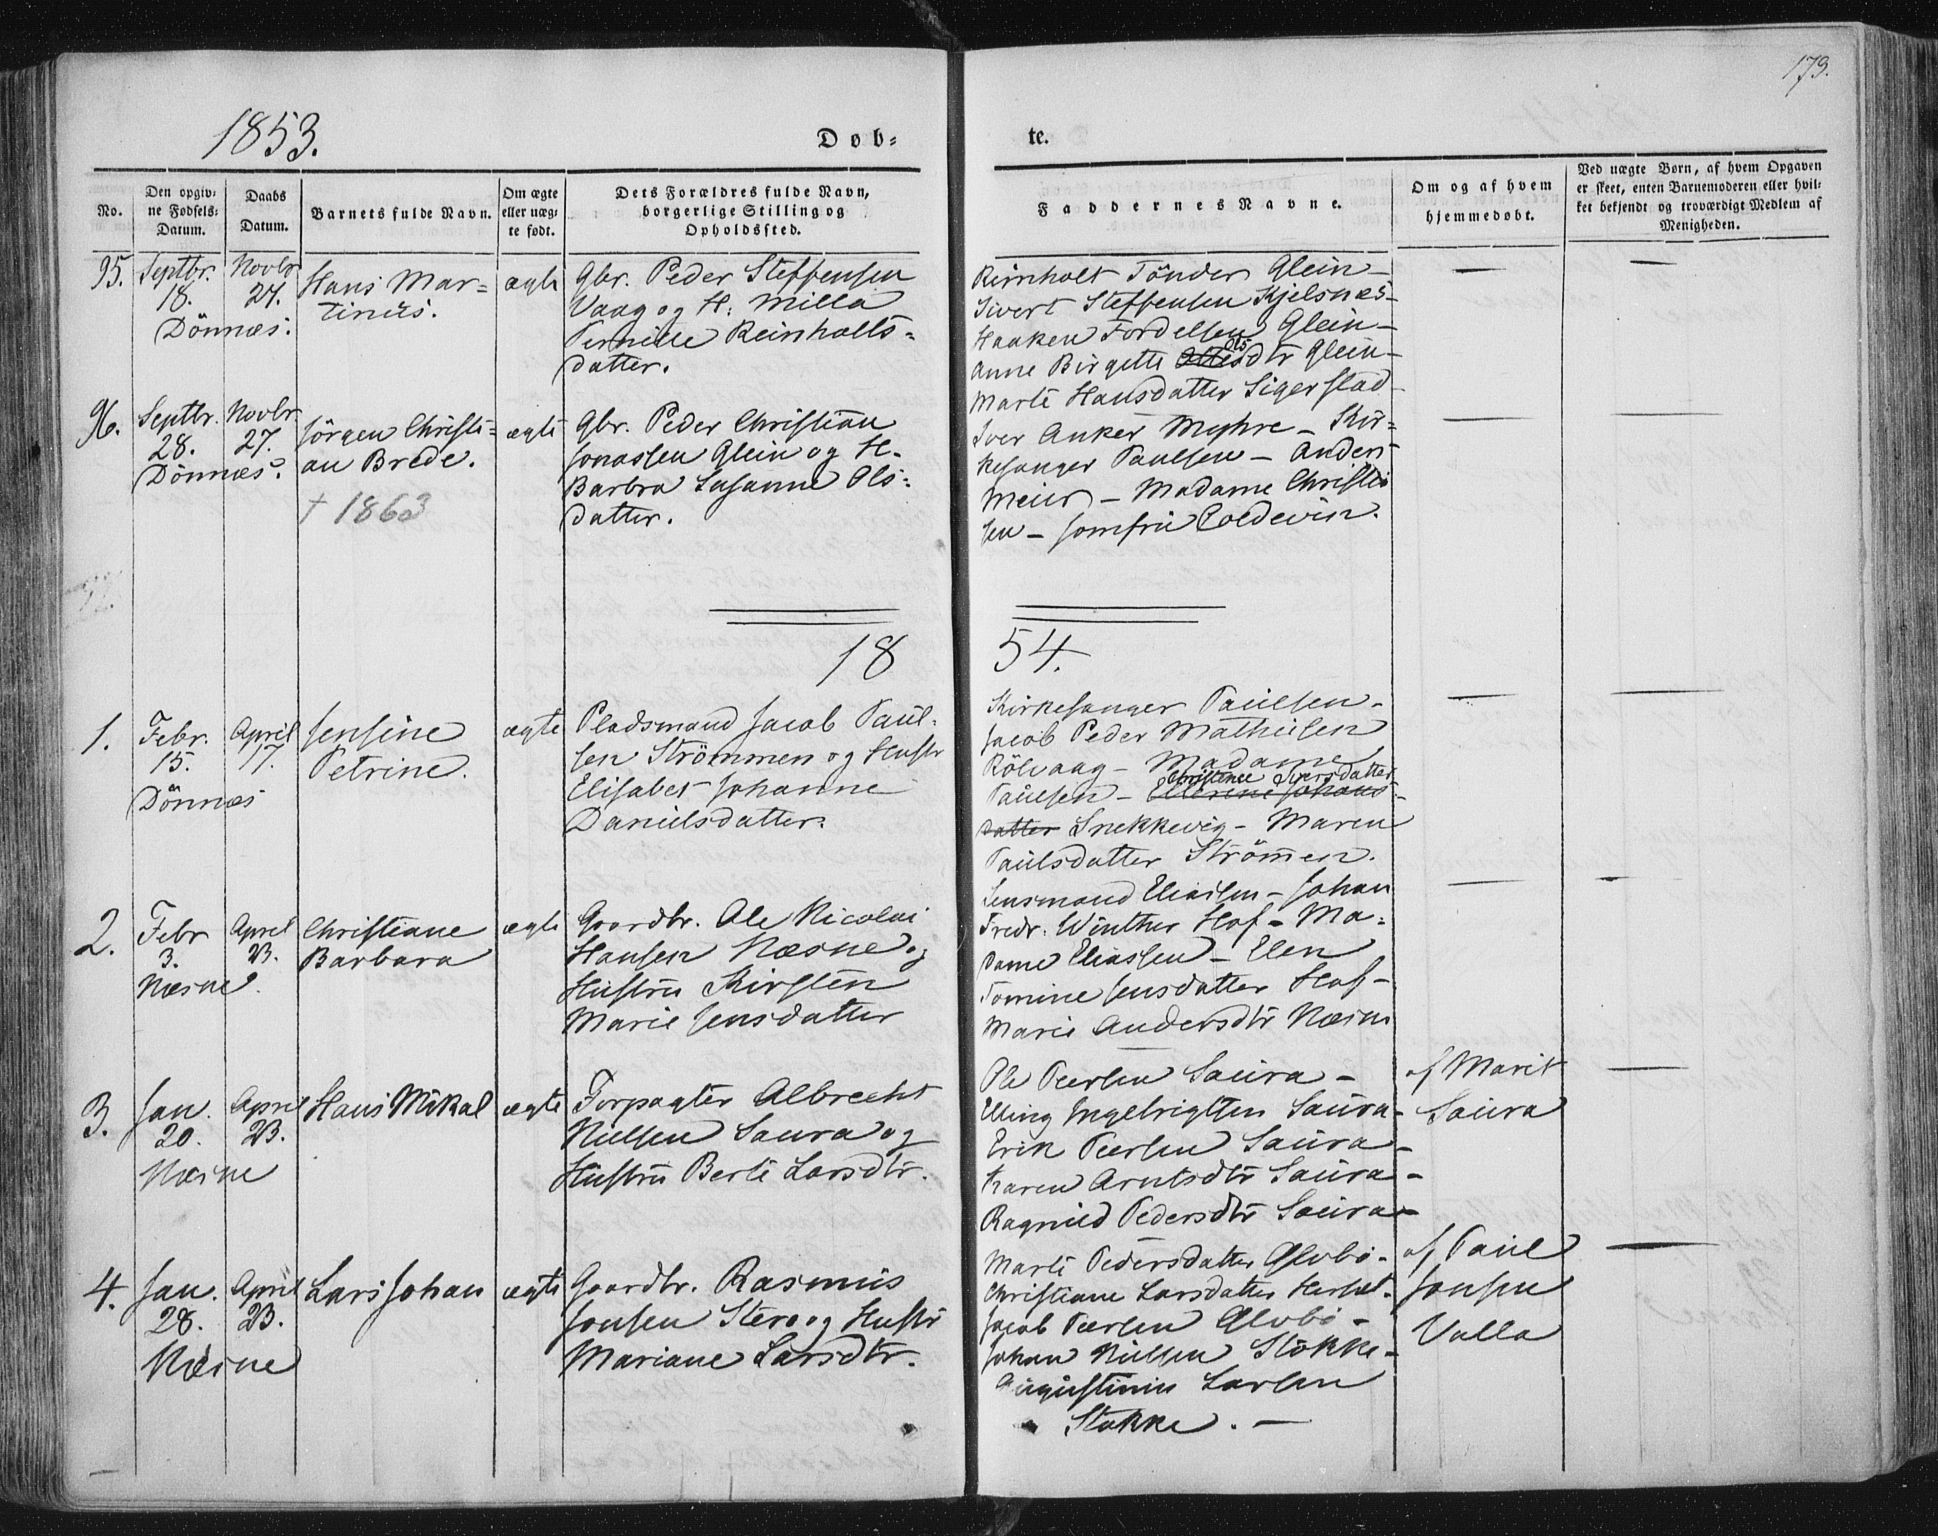 173.
1853.
Døb=
te.
No.
Den opgiv=
ne Fødsels=
Datum.
Daabs
Datum.
Barnets fulde Navn.
Om ægte
eller uæg=
te født.
Dets Forældres fulde Navn,
borgerlige Stilling og
Opholdssted.
Faddernes Navne.
Om og af hvem
hjemmedøbt.
Ved uægte Børn, af hvem Opgaven
er skeet, enten Barnemoderen eller hvil=
ket bekjendt og troværdigt Medlem af
Menigheden.
95.
Septbr.
18.
Dönnæs.
Novbr
27.
Hans Mar=
tinus.
ægte
Gbr. Peder Steffensen
Vaag og H. Milla
Pernille Reinholts=
datter.
Reinholt Tönder Glein –
Sivert Steffensen Kjelsnæs –
Haaken Tordelsen Glein –
Anne Birgette Ols dtr Glein –
Marte Hansdatter Sigerstad –
—
—
96.
Septbr.
28.
Dönnæs.
Novbr.
27.
Jörgen Christi=
an Brede.
† 1863
ægte
Gbr. Peder Christian
Jonassen Glein og H.
Barbra Susanne Ols=
datter.
Iver Anker Myhre – Kir=
kesanger Paulsen – Anders
Meier – Madame Christen
sen – Jomfru Coldevin.
—
—
18
54.
1.
Febr.
15.
Dönnæs
April
17.
Jensine
Petrine.
ægte
Pladsmand Jacob Paul=
sen Strömmen og Hustr
Elisabet Johanne
Danielsdatter.
Kirkesanger Paulsen –
Jacob Peder Mathisen
Rölvaag – Madame
Christence Iversdatter
Paulsen – Ellerine Johans=
datter Snekkevig – Maren
Paulsdatter Strömen.
—
—
2.
Febr
3.
Næsne.
April
23.
Christiane
Barbara
ægte
Gaardbr. Ole Nicolai
Hansen Næsne og
Hustru Kirsten
Marie Jensdatter
Lensmand Eliassen – Johan
Fredr. Winther Hof – Ma=
dame Eliassen – Elen
Tomine Jensdatter Hof –
Marie Andersdtr Næsne
—
—
3.
Jan.
20.
Næsne
April
23.
Hans Mikal
ægte
Forpagter Albrecht
Nielsen Saura og
Hustru Berte Larsdtr.
Ole Peersen Saura –
Elling Ingebrigtsen Saura –
Erik Peersen Saura –
Karen Arntsdtr Saura –
Ragnild Pedersdtr Saura –
af Marit
Saura
—
4.
Jan.
28.
Næsne
April
23.
Lars Johan
ægte
Gaardbr. Rasmus
Jonsen Stero og Hustr
Mariane Larsdtr.
Marte Pedersdatter Glvbö –
Christiane Larsdatter
Jacob Peersen Glvbö –
Johan Nielsen Stokke –
Augustinus Larsen
Stokke. —
af Paul
Jonsen
Valla
—